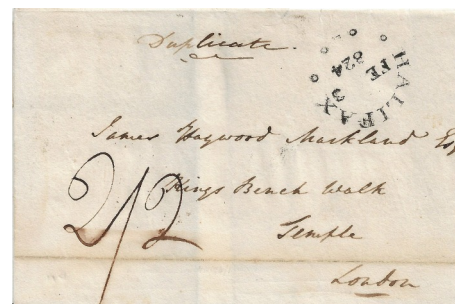 Duplicate.
HALIFAX
3
FE
824
James Heywood Markland Esq
2/2
Kings Bench Walk
Temple
London